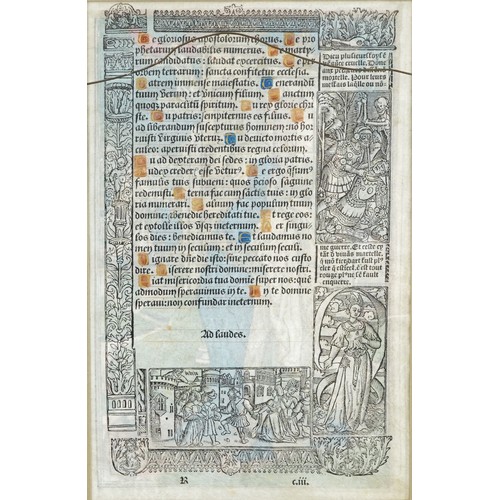 Te gloriosus apostolorum chorus. Te pro
phetarum laudabilis numerus. Te marty
rum candidatus: laudat exercitus. Te per
orbem terrarum: sancta confitetur ecclesia.
Patrem immense maiestatis. Venerandū
tuum verum: et vnicum filium. Sanctum
quoq; paraclitū spiritum. Tu rex glorie chri
ste. Tu patris: sempiternus es filius. Tu
ad liberandum suscepturus hominem: no hor
ruisti virginis vterū. Tu deuicto mortis a
culeo: aperuisti credentibus regna celorum.
Tu ad dexteram dei sedes: in gloria patris.
Iudex crederis esse ventur9. Te ergo q̄sum9
famulis tuis subueni: quos p̄cioso sanguine
redemisti. Eterna fac cum sāctis tuis: in glo
ria numerari. Saluum fac populum tuum
domine: et benedic hereditati tue. Et rege eos:
et extolle illos vsq; in eternum. Per singu
los dies: benedicimus te. Et laudamus no
men tuum in seculum: et in seculum seculi.
Dignare dn̄e die isto: sine peccato nos custo
dire. Miserere nostri domine: miserere nostri.
Fiat misericordia tua domine super nos: que
admodum sperauimus in te. In te domine
speraui: non confundar in eternum.
Ad laudes.
Dieu plusieurs foys
mortelle. Pour leurs
me guerre. Et ceste
mortelle,
rouge
enquerre.
R
c.iii.